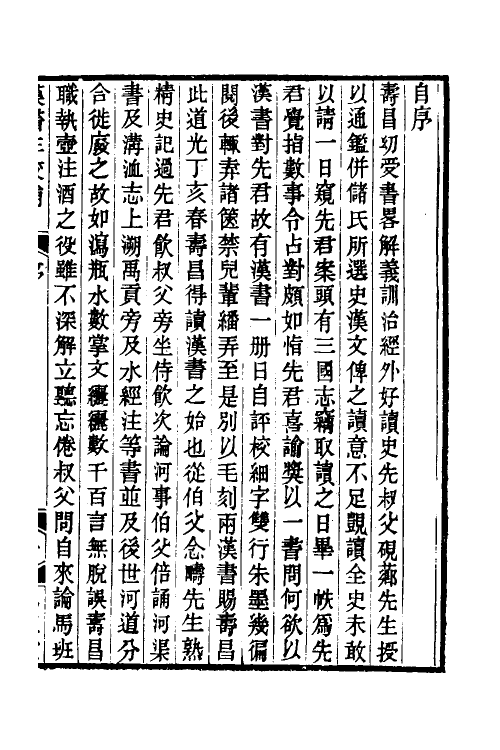 自序
壽昌幼受書畧解義訓治經外好讀史先叔父硯薌先生授
以通鑑併儲氏所選史漢文俾之讀意不足覬讀全史未敢
以請一日窺先君案頭有三國志竊取讀之日畢一帙爲先
君覺指數事令占對頗如恉先君喜諭奬以一書問何欲以
漢書對先君故有漢書一册日自評校細字雙行朱墨幾徧
閱後輒弆諸篋禁兒輩繙弄至是別以毛刻兩漢書賜壽昌
此道光丁亥春壽昌得讀漢書之始也從伯父念疇先生熟
精史記過先君飮叔父旁坐侍飮次論河事伯父倍誦河渠
書及溝洫志上溯禹貢旁及水經注等書並及後世河道分
合徙廢之故如瀉瓶水數掌文纚纚數千百言無脫誤壽昌
職執壺注酒之役雖不深解立聽忘倦叔父問自來論馬班